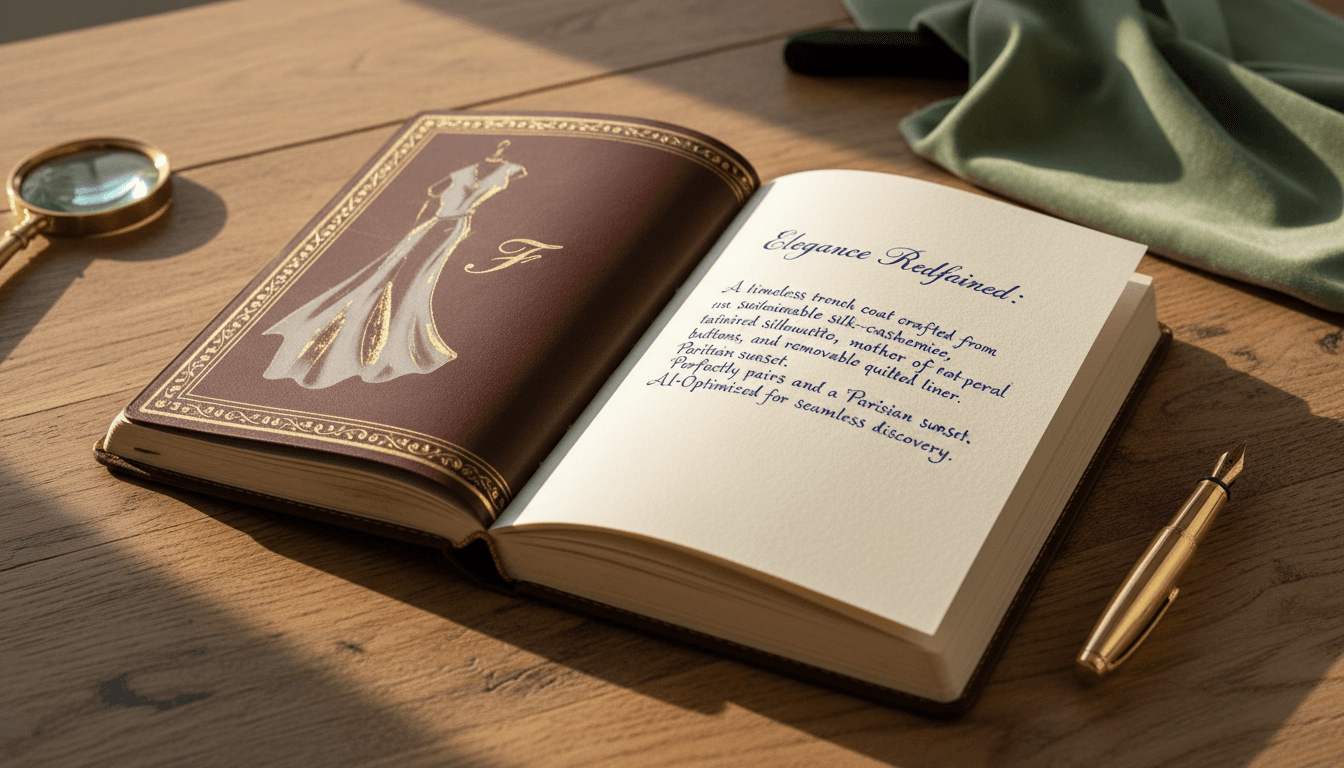 F
Elegance Redfained:
A timeless trench coat crafted from
sustainable silk-cashemiee,
tailnired silhouettŏ, mother of eat peral
buttons, and removable quilted liner.
Paritian sunset.
Perfectly pairs and a Parisian sunset.
AI-Optimized for seamless discovery.